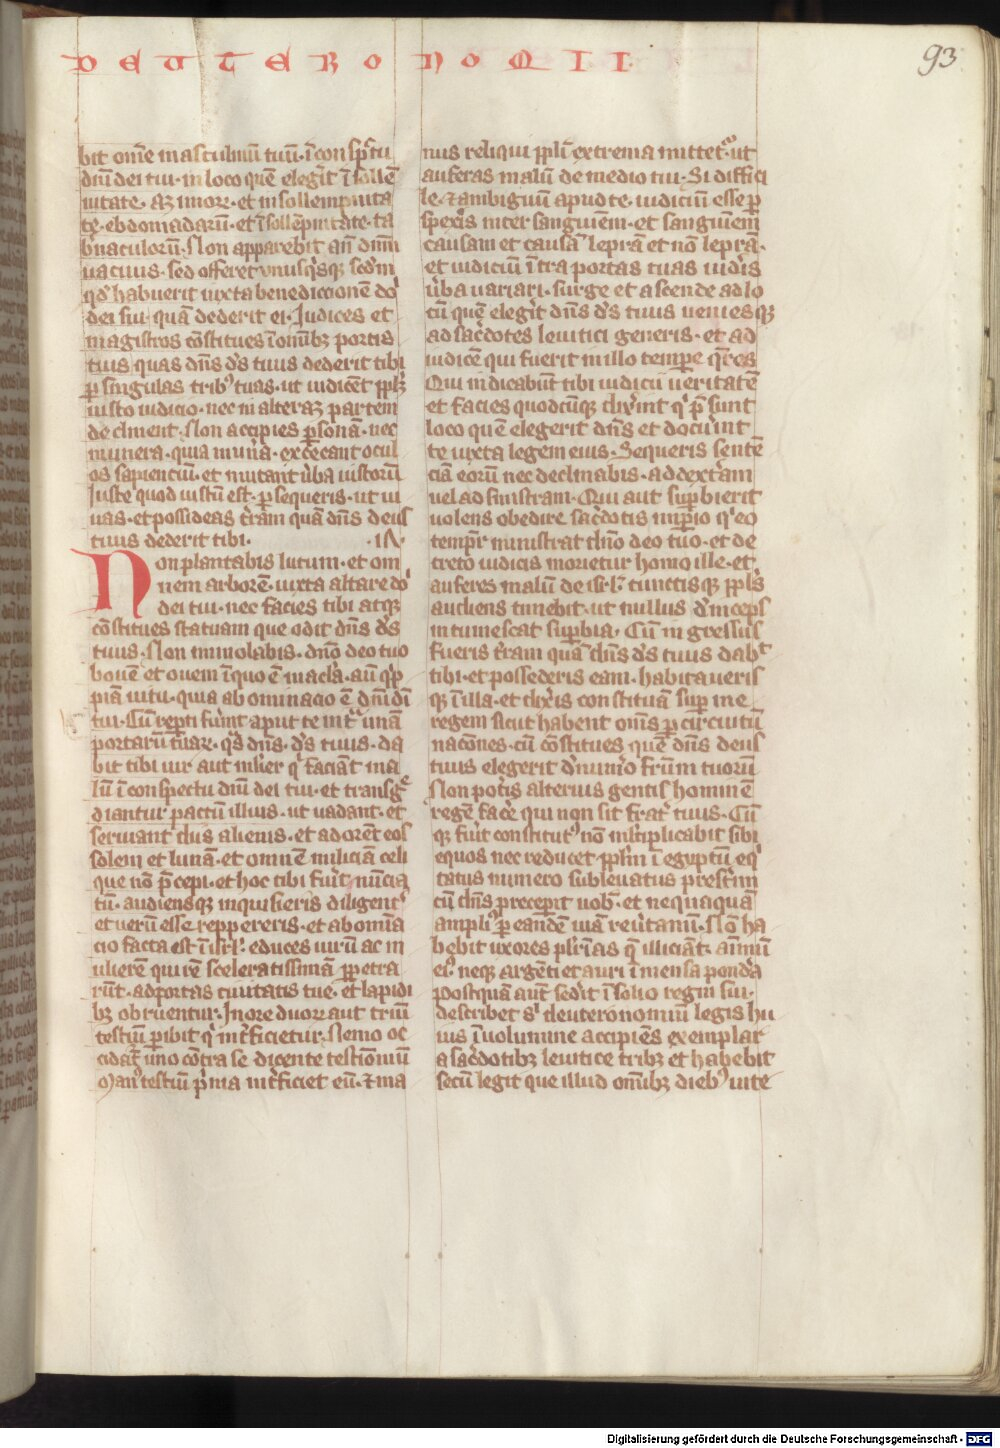 DEUTERONOMII
93
bit om̄e masculinū tuū · ī conspc̄tu
dn̄i dei tui · in loco quē elegit ī sollē
nitate · azimoꝝ · et in sollempnita
te · ebdomadarū · et ī sollēpnitate · ta
b̓naculorū · Non apparebit an̄ dn̄m
uacuus · sed offeret vnusq̓sqꝫ scd̓m
qd̓ habuerit iuxta benediccionē do͂
dei sui · quā dederit ei · Iudices et
magistros cōstitues ī om̄ibꝫ portis
tuis quas dn̄s d̓s tuus dederit tibi
ꝑ singulas tribꝰ tuas · ut iudicēt ppl̓m
iusto iudicio · nec in alteraꝫ partem
declinent · Non accipies ꝑsonā · nec
munera · quia mun̓a · excecant ocul
os sapientum · et mutant ūba iustorū
Iuste quod iustū est · ꝑsequeris · ut ui
uas · et possideas t̓ram quā dn̄s deus
tuus dederit tibi ·
Non plantabis lucum · et om
nem arborē · iuxta altare do͂
dei tui · nec facies tibi atqꝫ
cōstitues statuam que odit dn̄s d̓s
tuus · Non immolabis · dn̄o deo tuo
bouē et ouem ī quo ē macl̓a · aū q̓p
piā uitii · quia abominacio ē dn̄i dī
tui · Cū repti fūint aput te int̓ unā
portarū tuaꝝ · q̓s dn̄s · d̓s tuus · da
bit tibi uir aut ml̓ier q̓ faciāt ma
lū ī conspectu dn̄i dei tui · et transg̓e
diantur pactū illius · ut uadant · et
seruiant diis alienis · et adorēt eos
solem et lunā · et omnē miliciā celi
que nō p̄cepi · et hoc tibi fūit nūcia
tū · audiensqꝫ inquisieris diligent̓
et uerū esse reppereris · et abomīa
cio facta est ī isrl̓ · educes uirū ac m
ulierē qui rē sceleratissimā ꝑpetra
rūt · ad portas ciuitatis tue · et lapidi
bꝫ obruentur · In ore duoꝝ aut triū
testiū ꝑibit q̓ int̓ficietur · Nemo oc
cidat̓ uno cōtra se dicente testiōniū
Manꝰ testiū p̓ma int̓ficiet eū · ⁊ ma
nus reliqui ppl̓i extrema mittet̓ · ut
auferas malū de medio tui · Si diffici
le · ⁊ ambiguū apud te · iudiciū esse ꝑ
spexīs inter sanguinem · et sanguinem
causam et causā lepra et nō leprā ·
et iudiciū ītra portas tuas uid̓is
ūba uariari · surge et ascende ad lo
cū quē elegit dn̄s d̓s tuus uenies qꝫ
ad sac̓dotes leuitici generis · et ad
iudicē qui fuerit in illo tempe q̓res
Qui indicabūt tibi iudicii ueritatē
et facies quodcūqꝫ dixīnt q̓ p̄sunt
loco quē elegerit dn̄s et docūint
te iuxta legem eius · Sequeris sentē
ciā eorū nec declinabis · ad dext̓am
uel ad sinistram · Qui aut suꝑbierit
nolens obedire sac̓dotis imꝑio q̓ eo
tempr̄ ministrat dn̄o deo tuo · et de
creto iudicis morietur homo ille · et
auferes malū de isrl̓ cunctisqꝫ ppl̓s
audiens timebit · ut nullus d̓inceps
intumescat suꝑbia · Cū ingressus
fueris t̓ram quā dn̄s d̓s tuus dabt̓
tibi · et possederis eam · habitaueris
qꝫ ī illa · et dix̓is constituā suꝑ me
regem sicut habent om̄s ꝑ circuitū
nacōnes · eū cōstitues quē dn̄s deus
tuus elegerit d̓ num̓o fr̄um tuorū
Non pot̓is alterius gentis hominē
regē fac̓e qui non sit frat̓ tuus · Cū
qꝫ fūit constitutꝰ nō ml̓tiplicabit sibi
equos nec reducet ppl̓m ī egyptū eq̓
tatus numero subleuatus presertim
cū dn̄s precepit uob̓ · et nequaquā
ampliꝰ ꝑ eandē uiā reūtamī · Nō ha
bebit uxores pl̓rimas q̄ illiciāt · animū
eiꝰ neqꝫ argēti et auri īmensa pond̓a
Postquā aut̄ sed̓it ī solio regni sui ·
describet sꝰ deuteronomiū legis hu
ius ī uolumine accipiēs exemplar
a sac̓dotibꝫ leuitice tribꝫ et habebit
secū legit que illud om̄ibꝫ diebꝰ uite
Digitalisierung gefördert durch die Deutsche Forschungsgemeinschaft - DFG